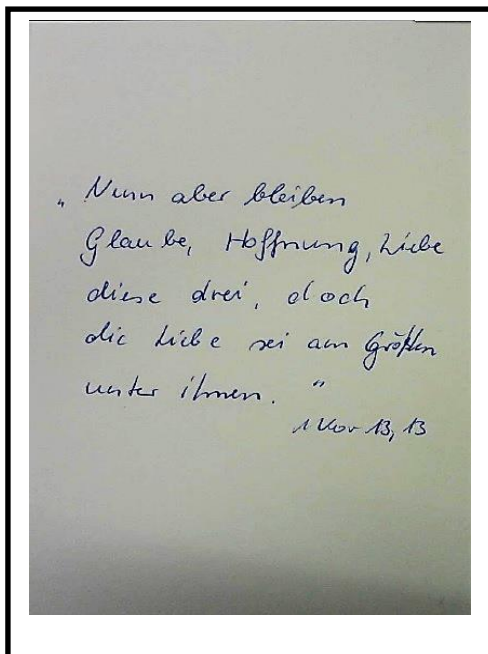 „ Nunn aber bleiben
Glaube, Hoffnung, Liebe
diese drei, doch
die Liebe sei am Größten
unter ihnen. "
1 Kor 13, 13